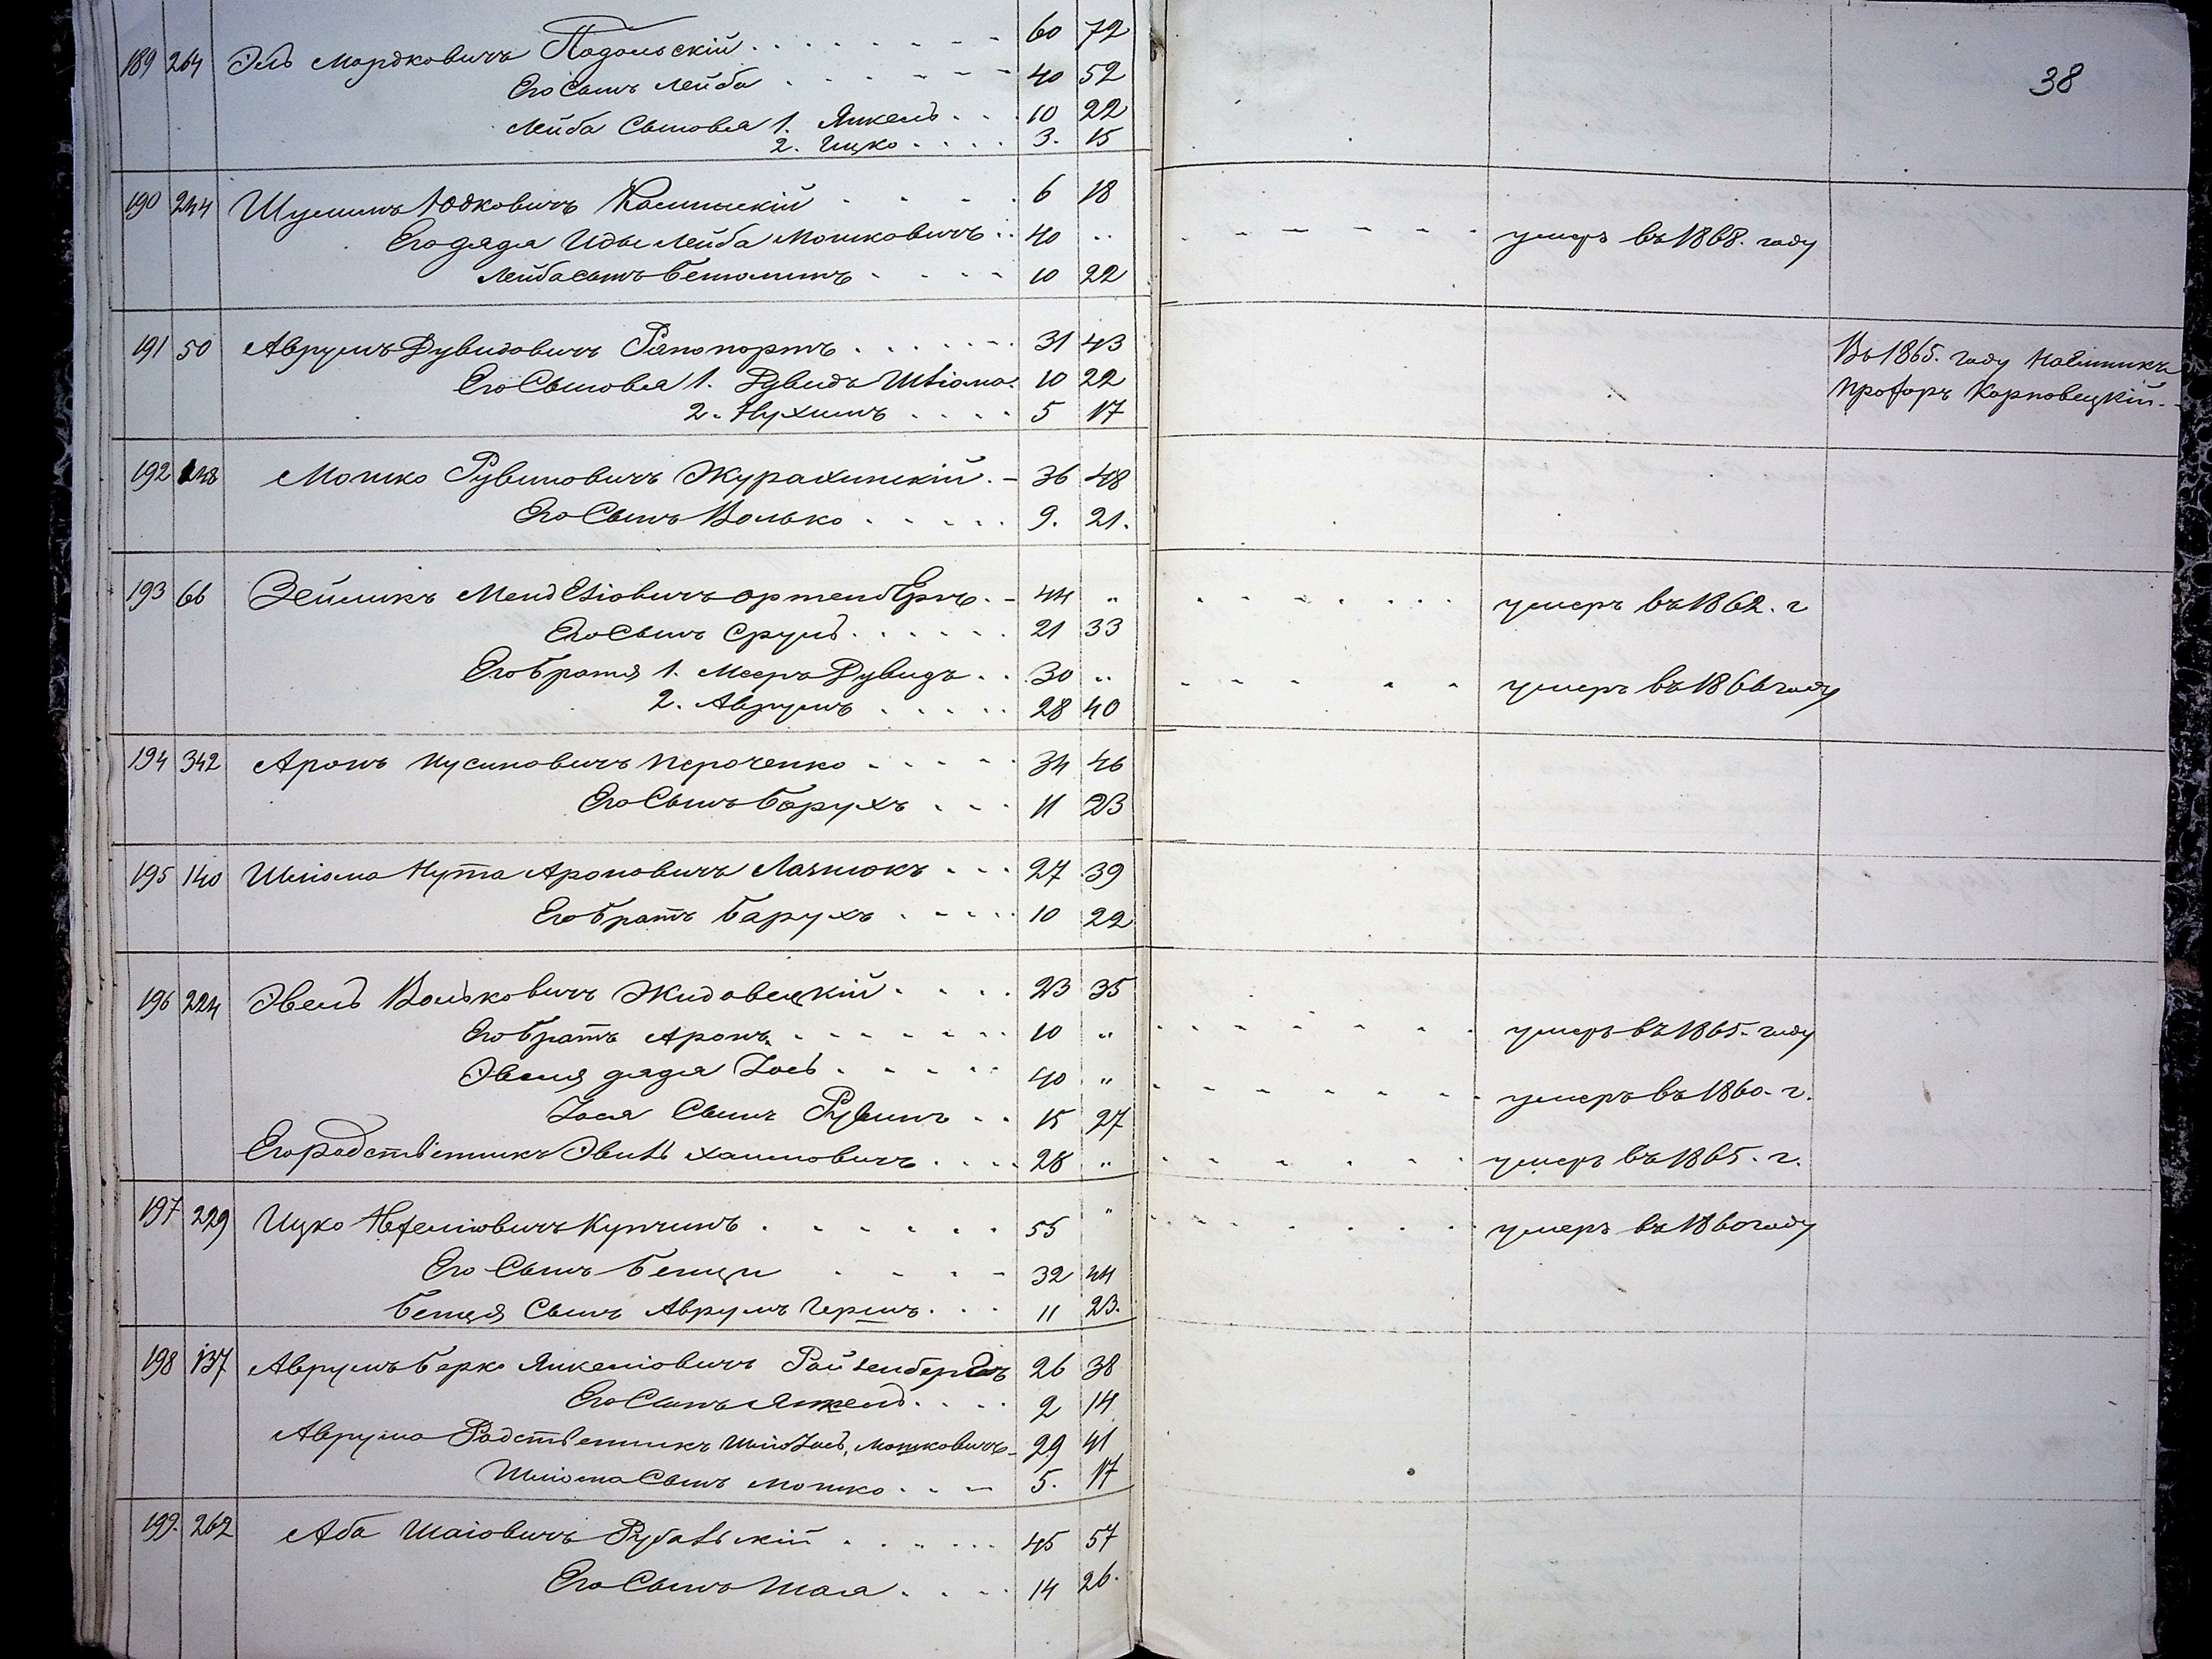 38
189 264 Эль Мордковичъ Подольскій 60 72
Его Сынъ Лейба 40 52
Лейба Сыновья 1. Янкель 10 22
2. Ицко 3. 15
190 244 Шулимъ Юдковичъ 6 18
Его дядя Иды Лейба Мошковичъ 40 " умеръ въ 1868. году
Лейба сынъ Беньминъ 10 22
191 50 Аврумъ Дувидовичъ Рапопортъ 31 43 Въ 1865. году Наемникъ
Его Сыновья 1. Дувидъ Шліома 10 22 Профоръ Карповецкій
2. Нухимъ 5 17
192 Мошко Рувиновичъ Журахинскій 36 48
Его Сынъ Волько 9. 21.
193 66 Зейликъ Менделіовичъ 44 " умеръ въ 1862. г
Его Сынъ Сруль 21 33
Его братья 1. Мееръ Дувидъ 30 " умеръ въ 1866 году
2. Аврумъ 28 40
194 342 Аронъ Нусиновичъ Пероченко 34 46
Его Сынъ Борухъ 11 23
195 140 Шліома Нута Ароновичъ 27 39
Его братъ Барухъ 10 22
196 224 Эвель Вольковичъ Жидовецкій 23 35
Его братъ Аронъ 10 " умеръ въ 1865. году
Эвеля дядя Іось 40 " умеръ въ 1860. г.
Іося Сынъ Рувинъ 15 27
Его родственникъ Эвель Хаимовичъ 28 " умеръ въ 1865. г.
197 229 Ицко Купчинъ 55 " умеръ въ 1860 году
Его Сынъ Бенци 32 44
Бенця Сынъ Аврумъ Гершъ 11 23.
198 137 Аврумъ Берко Янкеліовичъ Ройзенбергъ 26 38
Его Сынъ Янкель 2 14
Аврума Родственникъ Мошковичъ 29 41
Шліома Сынъ Мошко 5. 17
199. 262 Аба Шаіовичъ 45 57
Его Сынъ Шая 14 26.